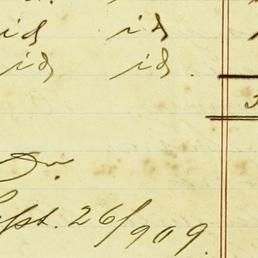 id id
id id.
Dr.
Sept. 26/909.